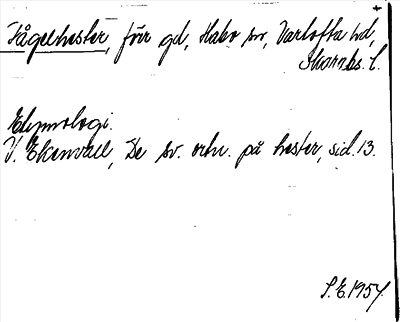 Fågelhester, förr gd, Habo sn, Vartofta hd,
Skarabs. l.
Etymologi.
V. Ekenvall, De sv. ortn. på hester, sid. 13.
S.E. 1957.